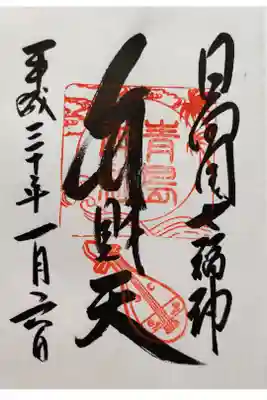 日向之国七福神
弁財天
平成三十年一月六日
青島